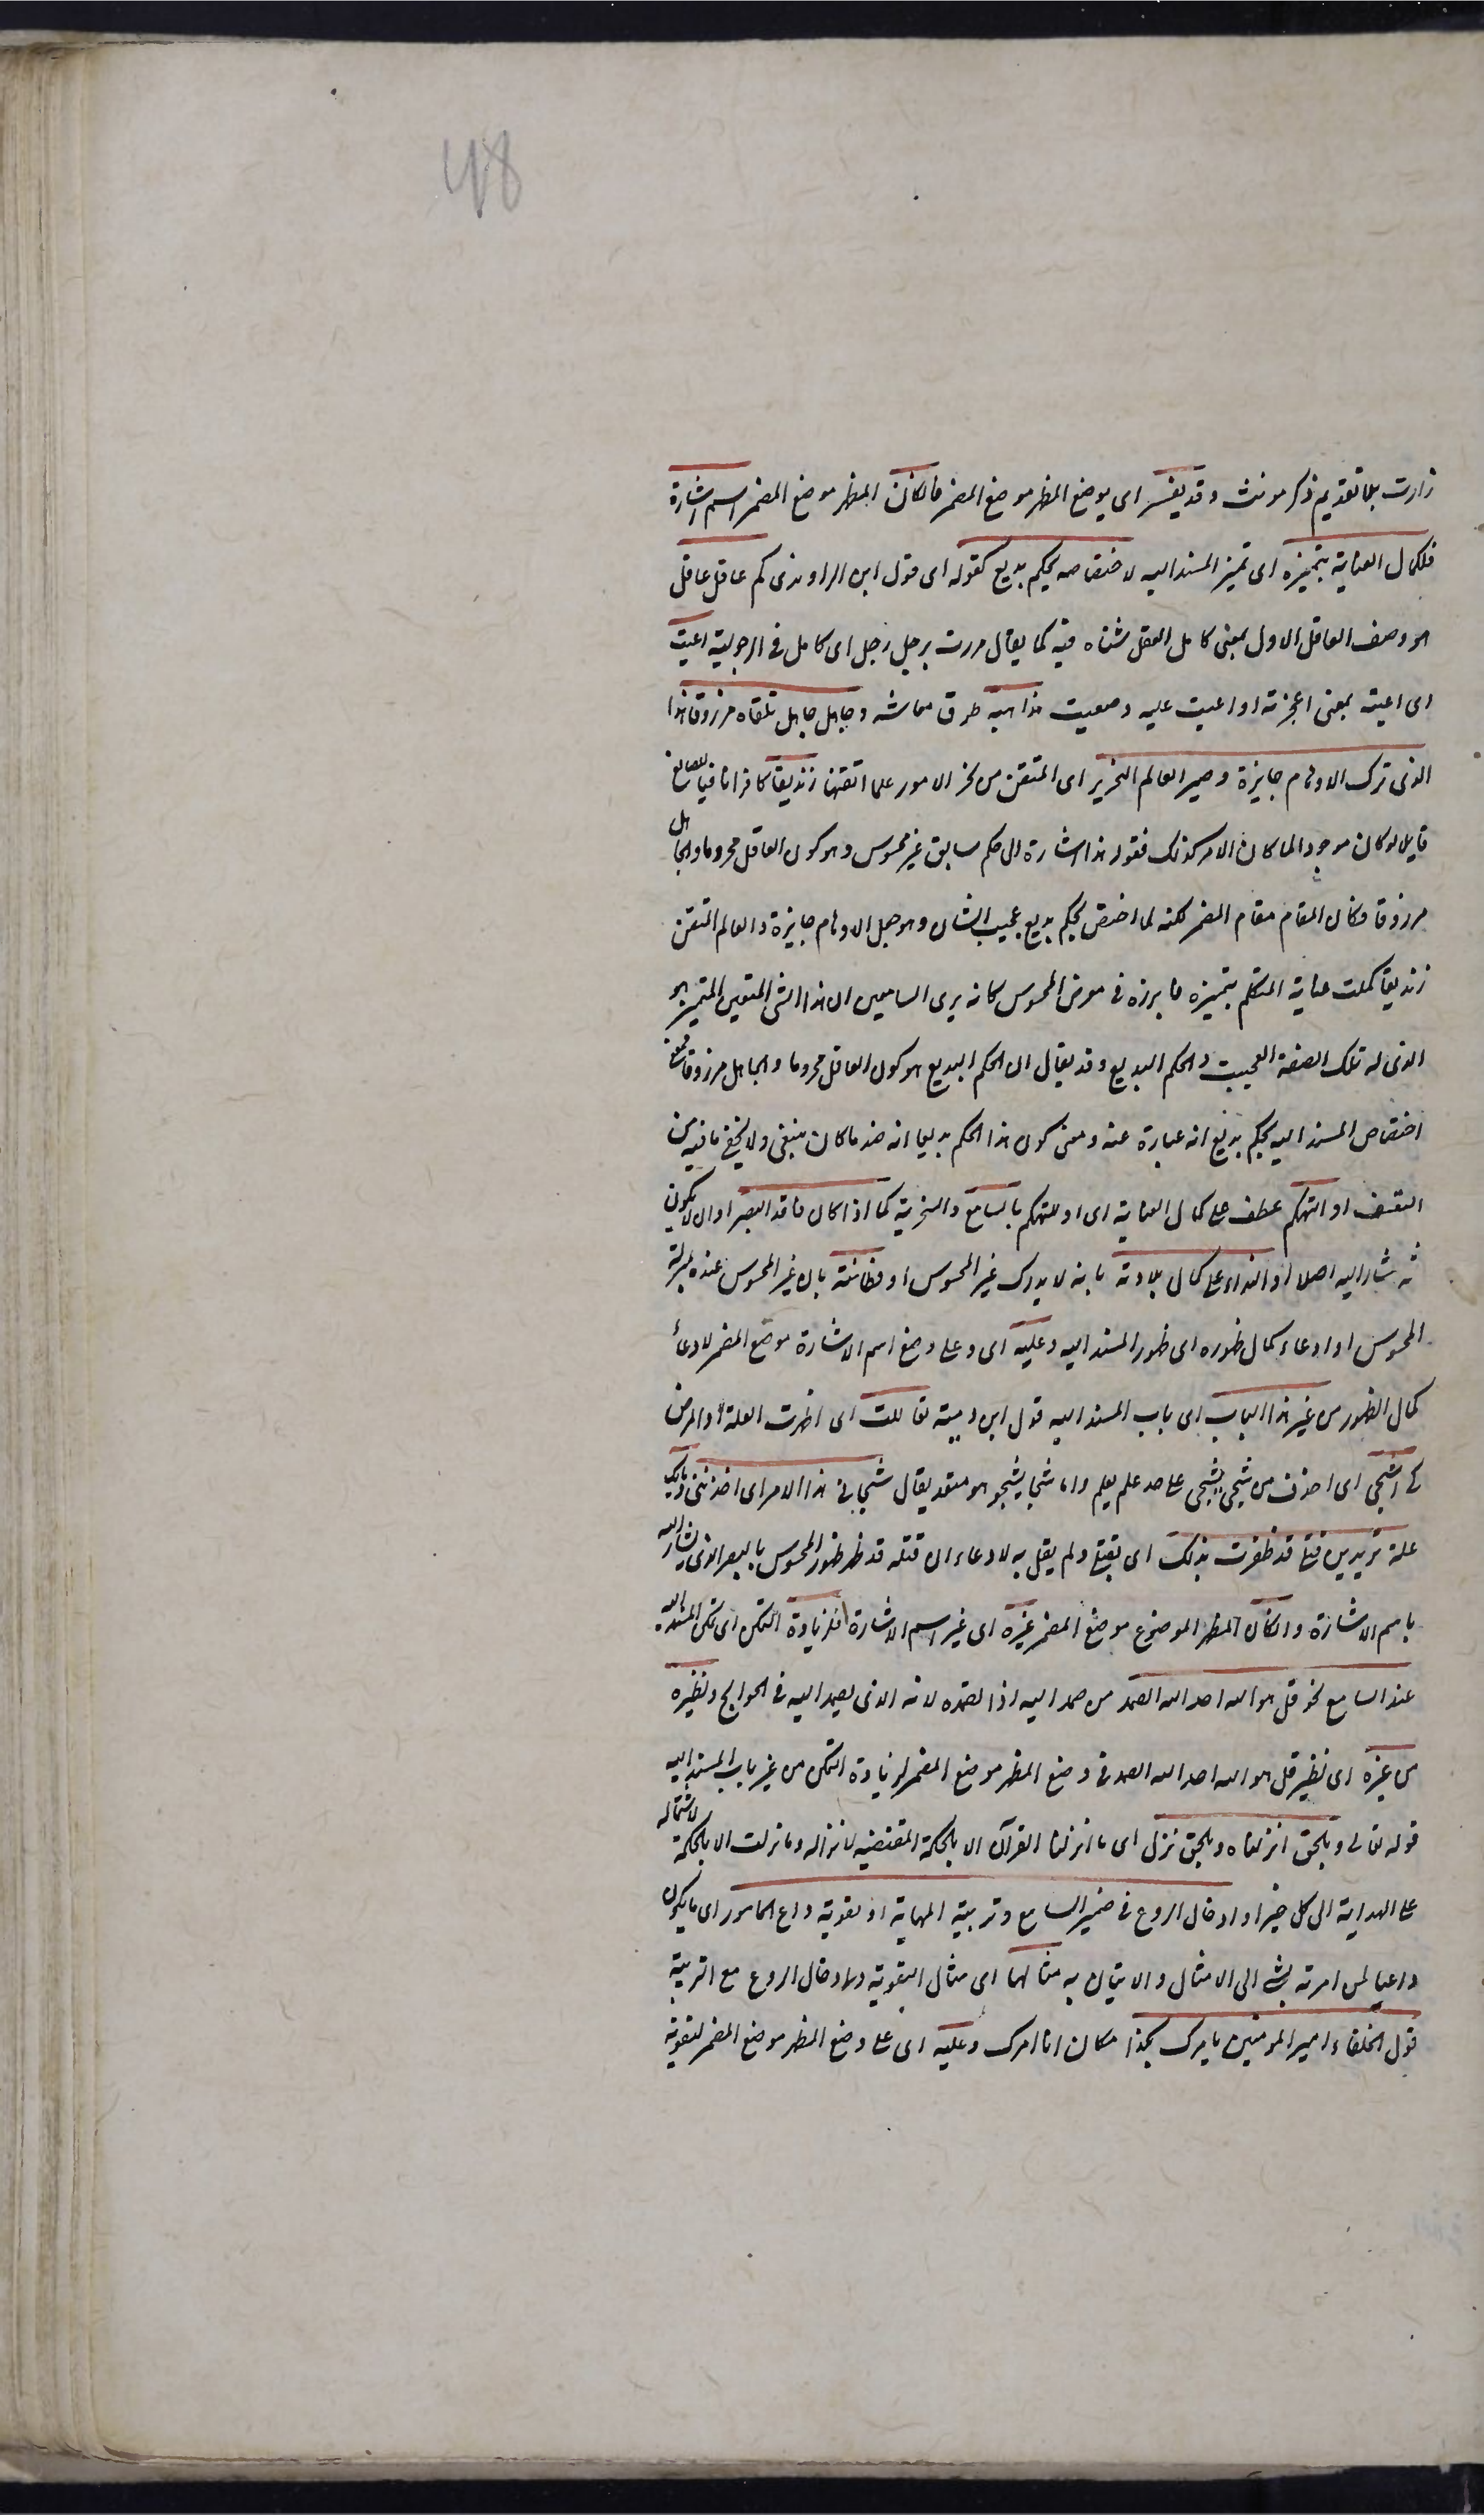 48
زارت بلا تقديم ذكر مونث وقد يعكس اى يوضع المظهر موضع المضمر فان كان المظهر موضع المضمر اسم اشارة
فلكمال العناية بتميزه اى تميز المسند اليه لاختصاصه بحكم بديع كقوله اى قول ابن الراوندى كم عاقل عاقل
هو وصف العاقل الاول بمعنى كامل العقل متناه فيه كما يقال مررت برجل رجل اى كامل فى الرجولية اعيت
اى اعيته بمعنى اعجزته او اعيت عليه وصعبت مذاهبه طرق معاشه وجاهل جاهل تلقاه مرزوقا هذا
الذى ترك الاوهام حايرة وصير العالم النحرير اى المتقن من نحر الامور علما اتقنها زنديقا كافرا نافيا للصانع
قايلا لو كان موجودا لما كان الامر كذلك فقوله هذا اشارة الى حكم سابق غير محسوس وهو كون العاقل محروما والجاهل
مرزوقا فكان المقام مقام المضمر لكنه لما اختص بحكم بديع عجيب الشان وهو جعل الاوهام حايرة والعالم المتقن
زنديقا كملت عناية المتكلم بتميزه فابرزه فى معرض المحسوس كانه يرى السامعين ان هذا الشئ المتعين المتميز هو
الذى له تلك الصفة العجيبة والحكم البديع وقد يقال ان الحكم البديع هو كون العاقل محروما والجاهل مرزوقا فمعنى
اختصاص المسند اليه بحكم بديع انه عبارة عنه ومعنى كون هذا الحكم بديعا انه ضد ما كان ينبغى ولا يخفى ما فيه من
التعسف او التهكم عطف على كمال العناية اى او للتهكم بالسامع والسخرية كما اذا كان فاقد البصر او ان لا يكون
ثه مشار اليه اصلا او النداء على كمال بلادته بانه لا يدرك غير المحسوس او فطانته بان غير المحسوس عنده بمنزلة
المحسوس او ادعاء كمال ظهوره اى ظهور المسند اليه وعليه اى وعلى وضع اسم الاشارة موضع المضمر لادعاء
كمال الظهور من غير هذا الباب اى باب المسند اليه قول ابن دمينة تعاللت اى اظهرت العلة والمرض
كى اشجى اى احزن من شجى يشجى على حد علم يعلم واما شجا يشجو هو متعد يقال شجانى هذا الامر اى احزننى وما بك
علة تريدين قتلى قد ظفرت بذلك اى بقتلى ولم يقل به لادعاء ان قتله قد ظهر ظهور المحسوس بالبصر الذى يشار اليه
باسم الاشارة وان كان المظهر الموضوع موضع المضمر غيره اى غير اسم الاشارة فلزيادة التمكن اى تمكن المسند اليه
عند السامع نحو قل هو الله احد الله الصمد من صمد اليه اذا قصده لانه الذى يصمد اليه فى الحوايج ونظيره
من غيره اى نظير قل هو الله احد الله الصمد فى وضع المظهر موضع المضمر لزيادة التمكن من غير باب المسند اليه
قوله تعالى وبالحق انزلناه وبالحق نزل اى ما انزلنا القرآن الا بالحكمة المقتضية لانزاله وما نزلت الا بالحكمة لاشتماله
على الهداية الى كل خير او ادخال الروع فى ضمير السامع وتربية المهابة او تقوية داع المامور اى ما يكون
داعيا لمن امرته بشئ الى الامتثال والاتيان به مثالهما اى مثال التقوية وادخال الروع مع التربية
قول الخلفاء امير المومنين يامرك بكذا مكان انا امرك وعليه اى على وضع المظهر موضع المضمر لتقوية